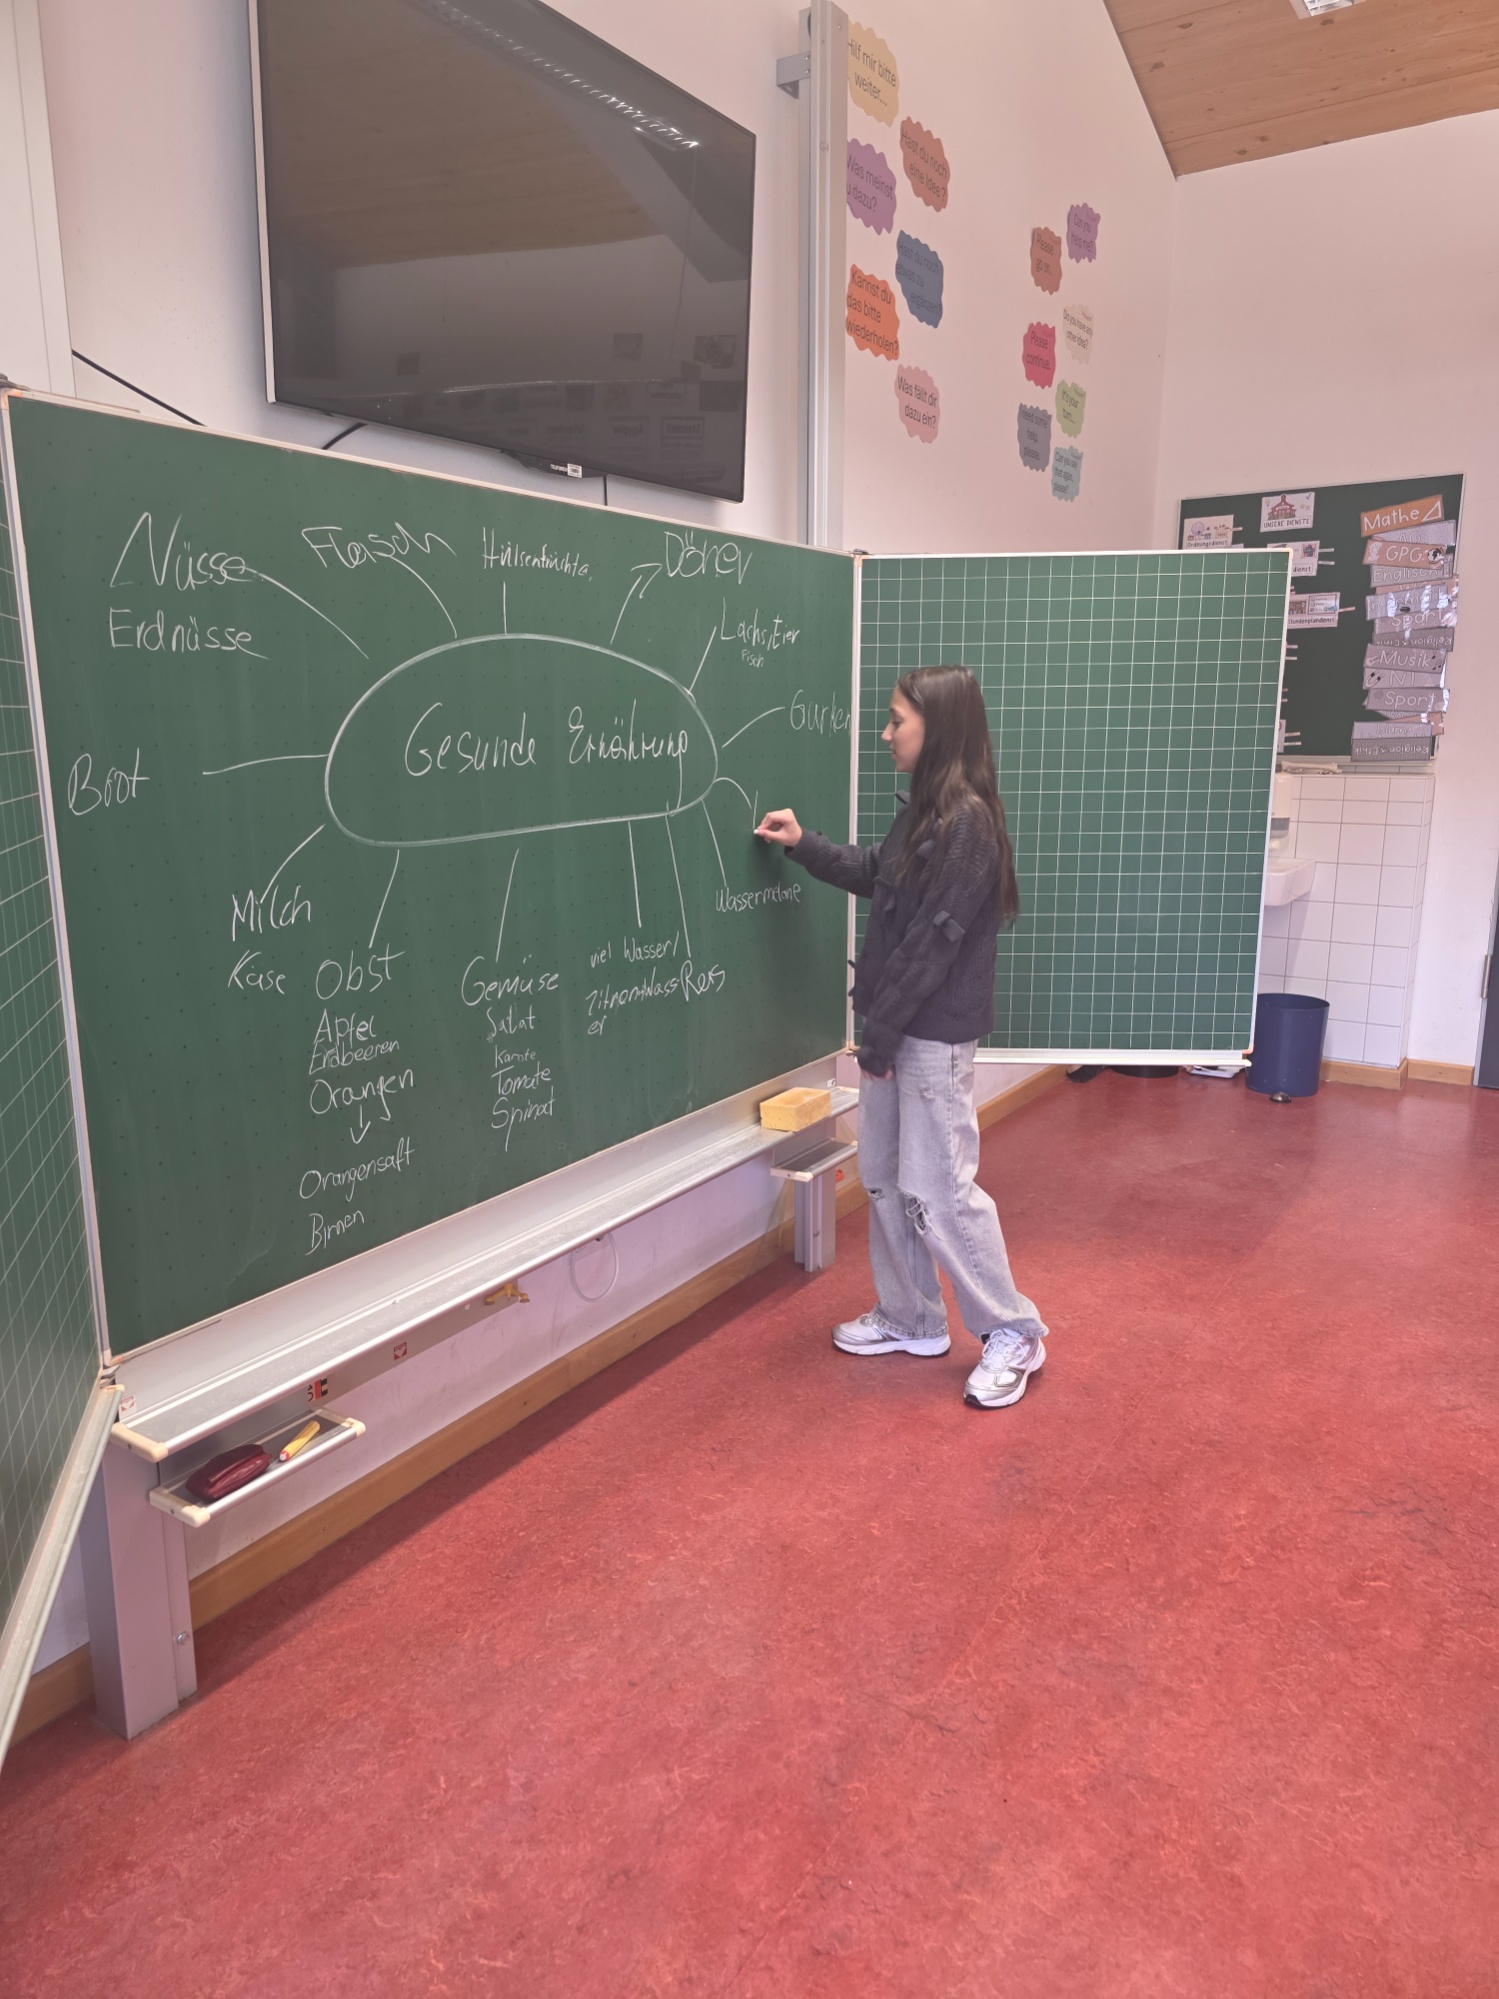 Hilf mir bitte
weiter...
Hast du noch
eine Idee?
Was meinst
du dazu?
Hast du noch
etwas zu
ergänzen?
Kannst du
das bitte
wiederholen?
Was fällt dir
dazu ein?
Can you
help me?
Please
go on.
Do you have any
other idea?
Please
continue.
It's your
turn...
Need some
help,
please.
Can you say
that again,
please?
UNSERE DIENSTE
Ordnungsdienst
Mathe
GPG
Englisch
Sport
Religion+Ethik
Musik
NT
Sport
Religion+Ethik
Nüsse
Erdnüsse
Fleisch
Hülsenfrüchte
Döner
Lachs, Eier
Fisch
Gurken
Gesunde Ernährung
Brot
Milch
Käse
Obst
Apfel
Erdbeeren
Orangen
Orangensaft
Birnen
Gemüse
Salat
Tomate
Spinat
viel Wasser/
Zitronenwass
er
Reis
Wassermelone